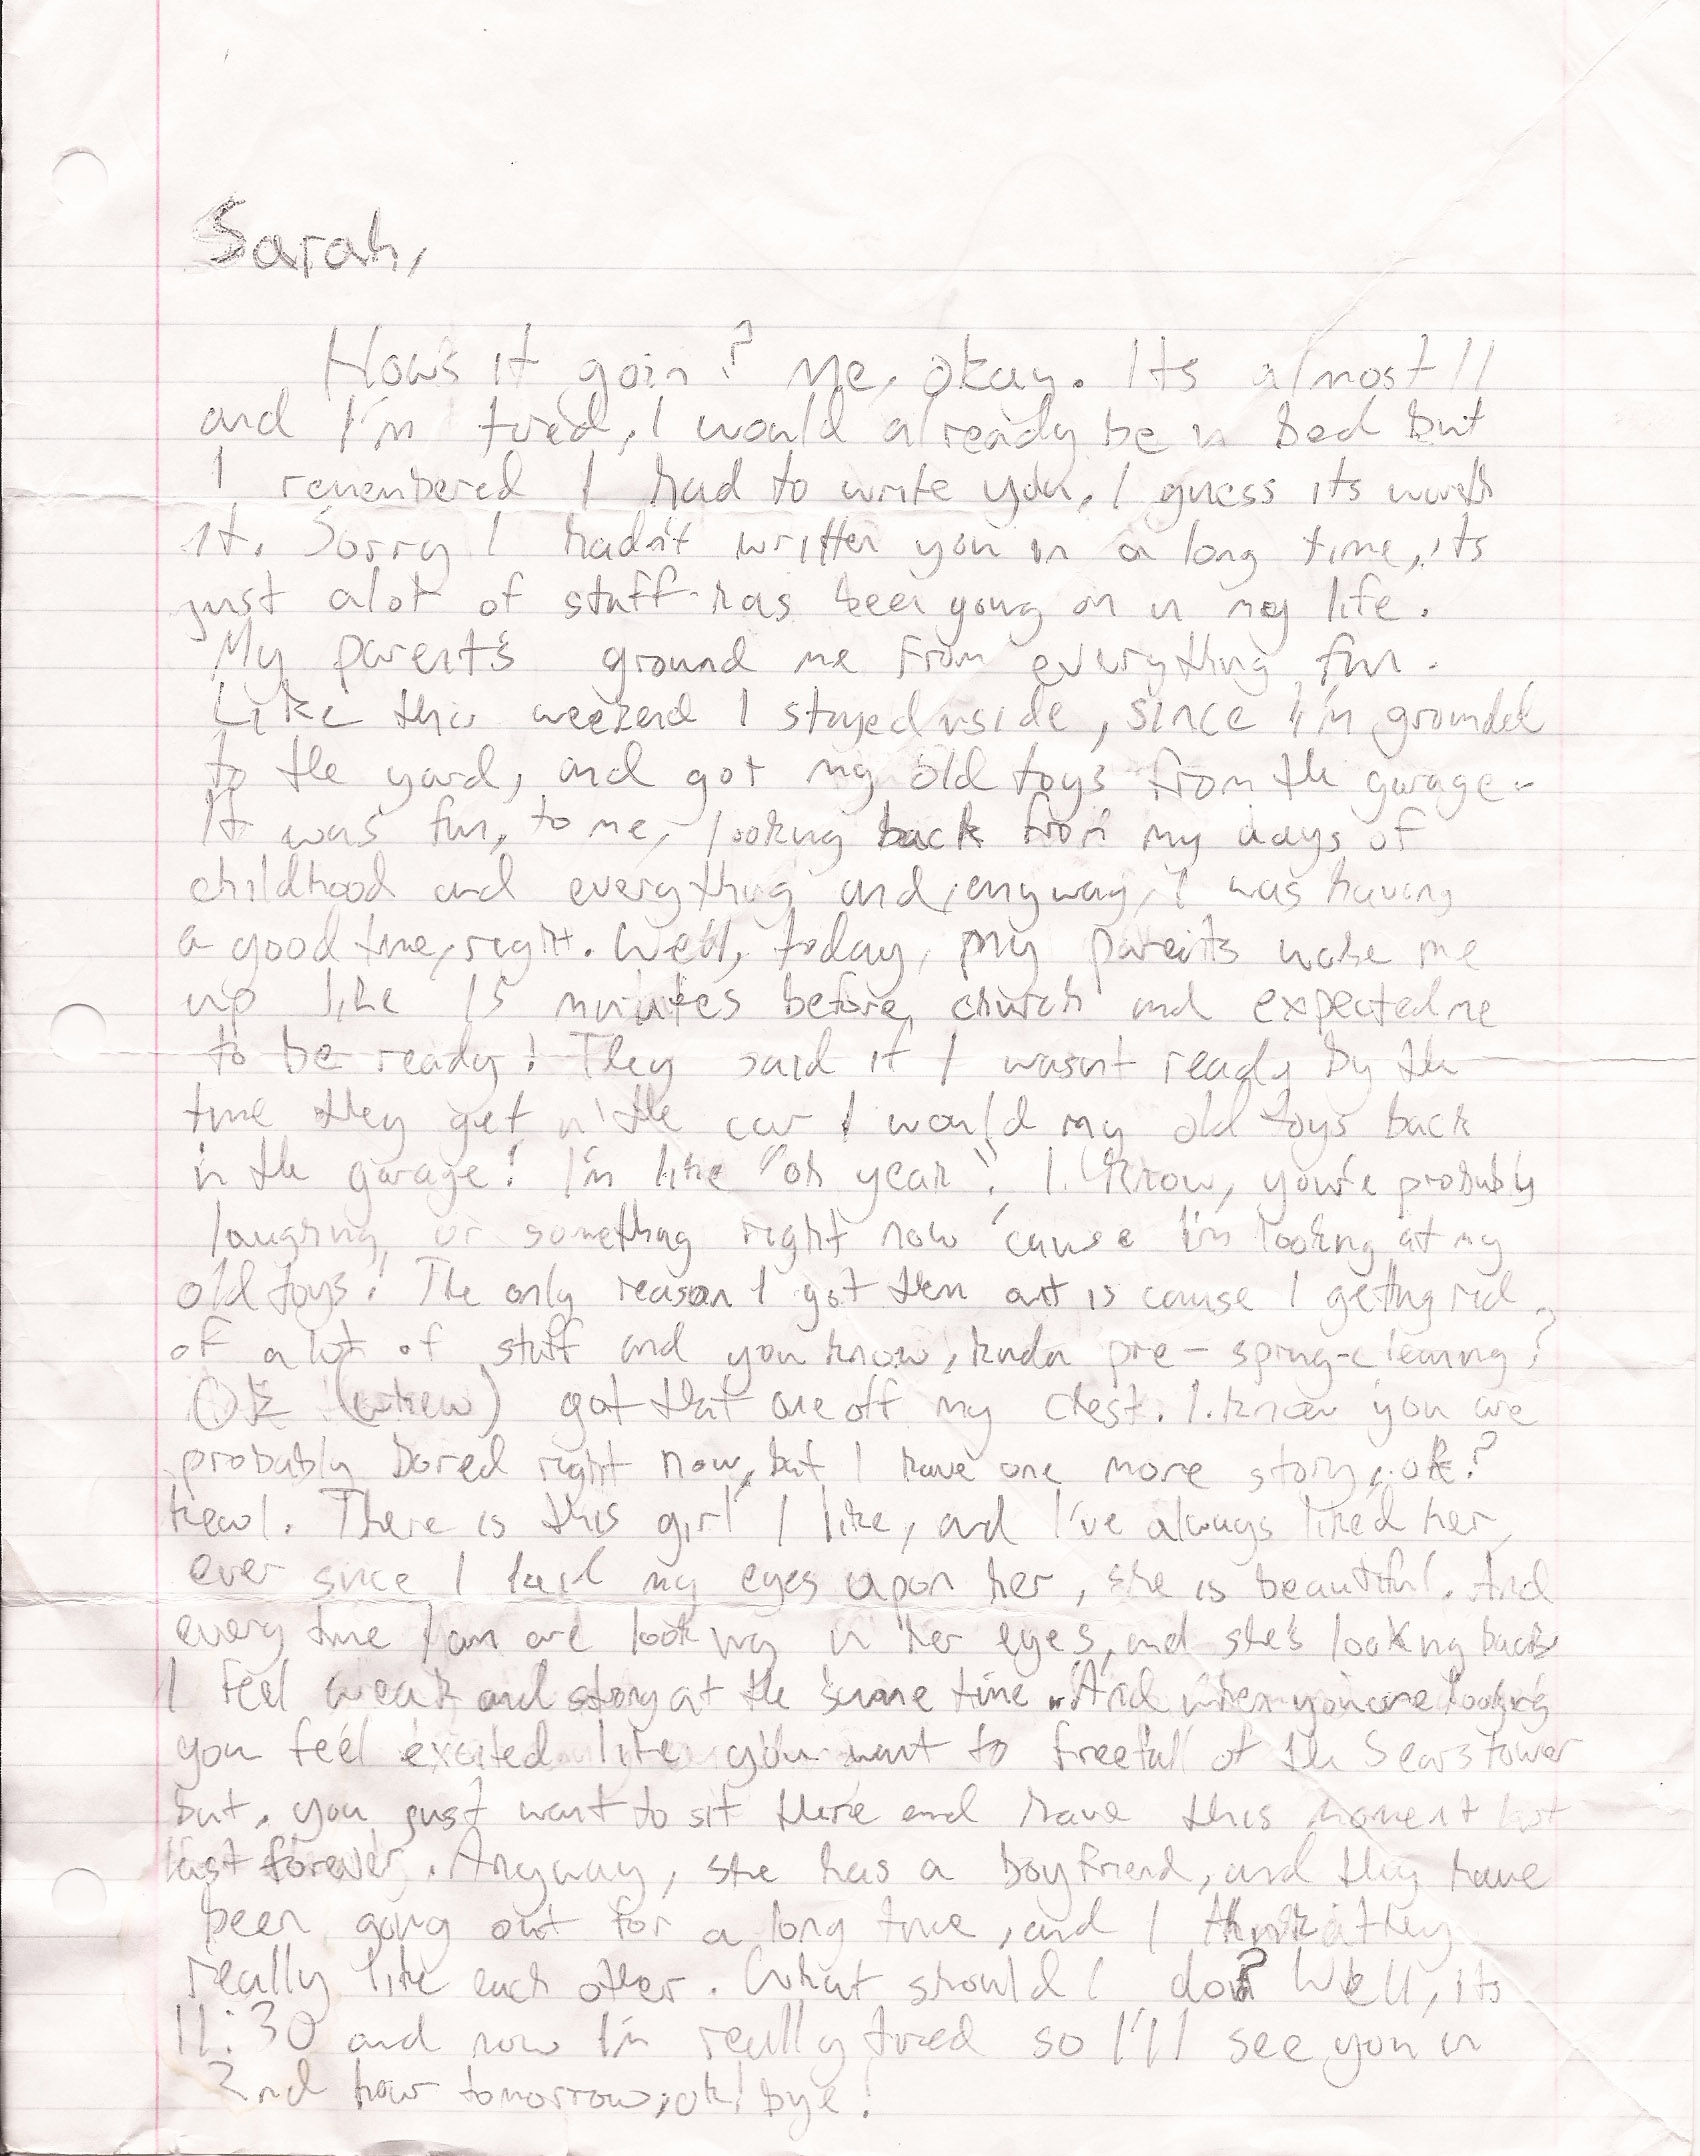 Sarah,
Hows it goin? Me, okay. Its almost 11
and I'm tired, I would already be in bed but
I remembered I had to write you, I guess its worth
it. Sorry I hadn't written you in a long time, its
just alot of stuff has been going on in my life.
My parents ground me from everything fun.
Like this weekend I stayed inside, since I'm grounded
to the yard, and got my old toys from the garage.
It was fun, to me, looking back from my days of
childhood and everything and, anyway, I was having
a good time, right. Well, today, my parents woke me
up like 15 minutes before church and expected me
to be ready! They said if I wasn't ready by the
time they get in the car I would my old toys back
in the garage! I'm like "oh yeah". I know, you're probably
laughing or something right now 'cause I'm looking at my
old toys! The only reason I got them out is cause I getting rid
of a lot of stuff and you know, kinda pre-spring-cleaning?
OK (whew) got that one off my chest. I know you are
probably bored right now, but I have one more story, ok?
kewl. There is this girl I like, and I've always liked her,
ever since I laid my eyes upon her, she is beautiful. And
every time I am are looking in her eyes, and she's looking back
I feel weak and strong at the same time. And when you are looking
you feel excited like you want to freefall of the Sears tower
but, you just want to sit there and have this moment
last forever. Anyway, she has a boyfriend, and they have
been going out for a long time, and I think they
really like each other. What should I do? Well, its
11:30 and now I'm really tired so I'll see you in
2nd hour tomorrow, ok! bye!